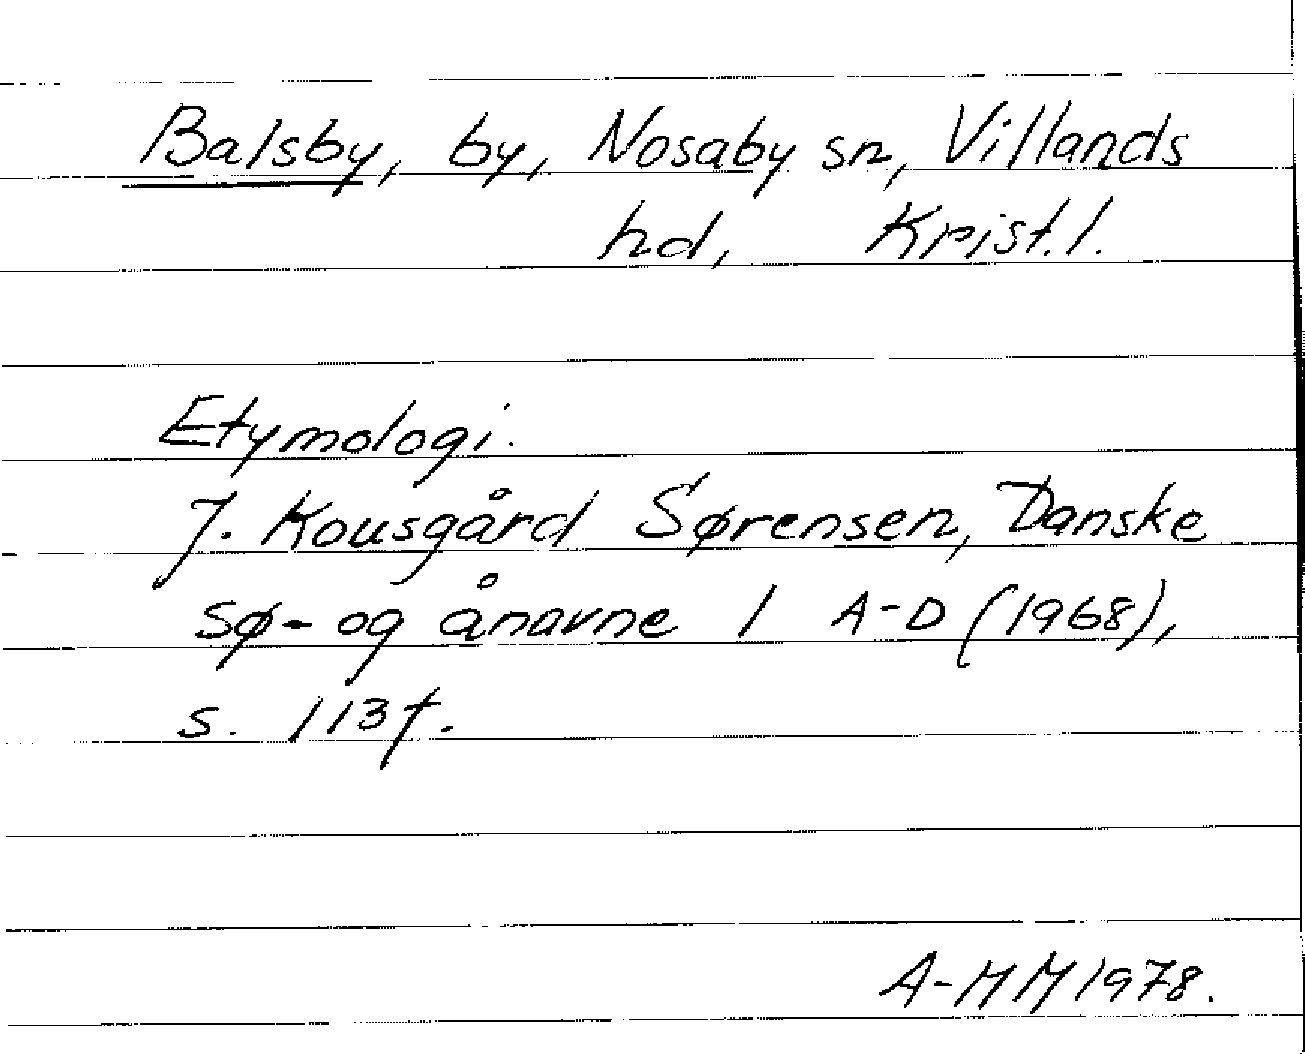 Balsby, by, Nosaby sn, Villands
hd, Krist. l.
Etymologi.
J. Kousgård Sørensen, Danske
sø- og ånavne 1 A-D (1968),
s. 113f.
A-MM 1978.